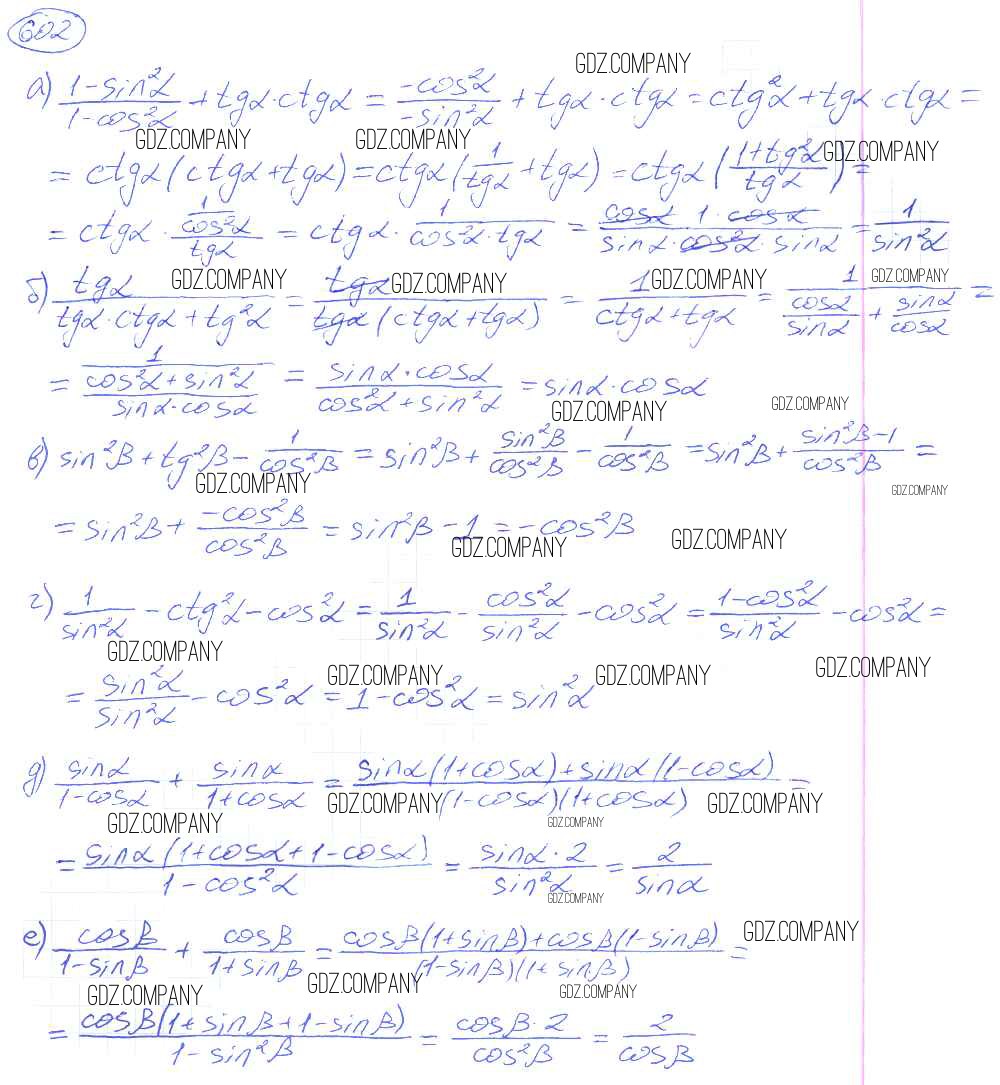 602
GDZ.COMPANY
а) (1-sin²α)/(1-cos²α) + tgα·ctgα = (-cos²α)/(-sin²α) + tgα·ctgα = ctg²α + tgα ctgα =
GDZ.COMPANY GDZ.COMPANY GDZ.COMPANY
= ctgα(ctgα+tgα) = ctgα(1/tgα + tgα) = ctgα((1+tg²α)/tgα) =
= ctgα · (1/cos²α)/tgα = ctgα · 1/(cos²α·tgα) = (cosα·1·cosα)/(sinα·cos²α·sinα) = 1/sin²α
GDZ.COMPANY GDZ.COMPANY GDZ.COMPANY GDZ.COMPANY
б) tgα/(tgα·ctgα+tg²α) = tgα/(tgα(ctgα+tgα)) = 1/(ctgα+tgα) = 1/(cosα/sinα + sinα/cosα) =
= 1/((cos²α+sin²α)/(sinα·cosα)) = (sinα·cosα)/(cos²α+sin²α) = sinα·cosα
GDZ.COMPANY GDZ.COMPANY
в) sin²β + tg²β - 1/cos²β = sin²β + sin²β/cos²β - 1/cos²β = sin²β + (sin²β-1)/cos²β =
GDZ.COMPANY GDZ.COMPANY
= sin²β + (-cos²β)/cos²β = sin²β - 1 = -cos²β
GDZ.COMPANY GDZ.COMPANY
г) 1/sin²α - ctg²α - cos²α = 1/sin²α - cos²α/sin²α - cos²α = (1-cos²α)/sin²α - cos²α =
GDZ.COMPANY GDZ.COMPANY GDZ.COMPANY GDZ.COMPANY
= sin²α/sin²α - cos²α = 1-cos²α = sin²α
д) sinα/(1-cosα) + sinα/(1+cosα) = (sinα(1+cosα)+sinα(1-cosα))/((1-cosα)(1+cosα)) =
GDZ.COMPANY GDZ.COMPANY GDZ.COMPANY GDZ.COMPANY
= (sinα(1+cosα+1-cosα))/(1-cos²α) = (sinα·2)/sin²α = 2/sinα
GDZ.COMPANY
е) cosβ/(1-sinβ) + cosβ/(1+sinβ) = (cosβ(1+sinβ)+cosβ(1-sinβ))/((1-sinβ)(1+sinβ)) =
GDZ.COMPANY
GDZ.COMPANY GDZ.COMPANY GDZ.COMPANY
= (cosβ(1+sinβ+1-sinβ))/(1-sin²β) = (cosβ·2)/cos²β = 2/cosβ